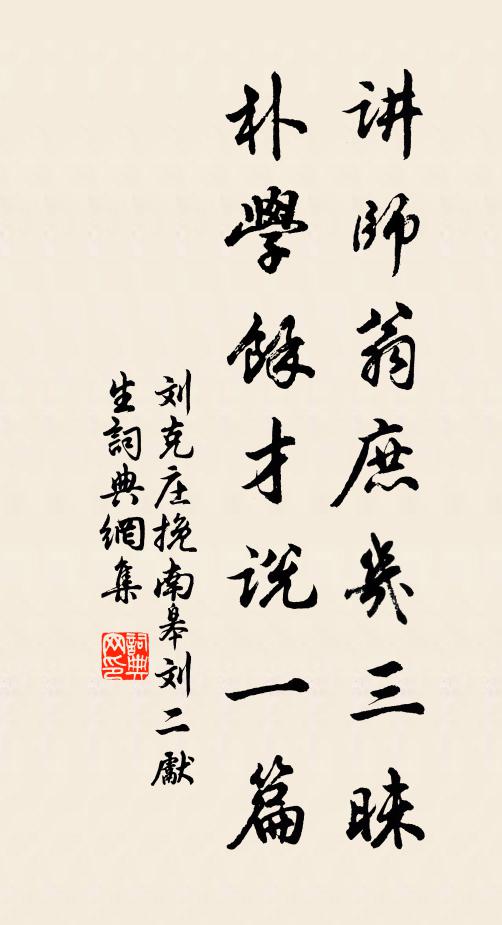 讲师翁庶几三昧
朴学馀才说一篇
刘克庄挽南皋刘二献
生词典网集
词典网印